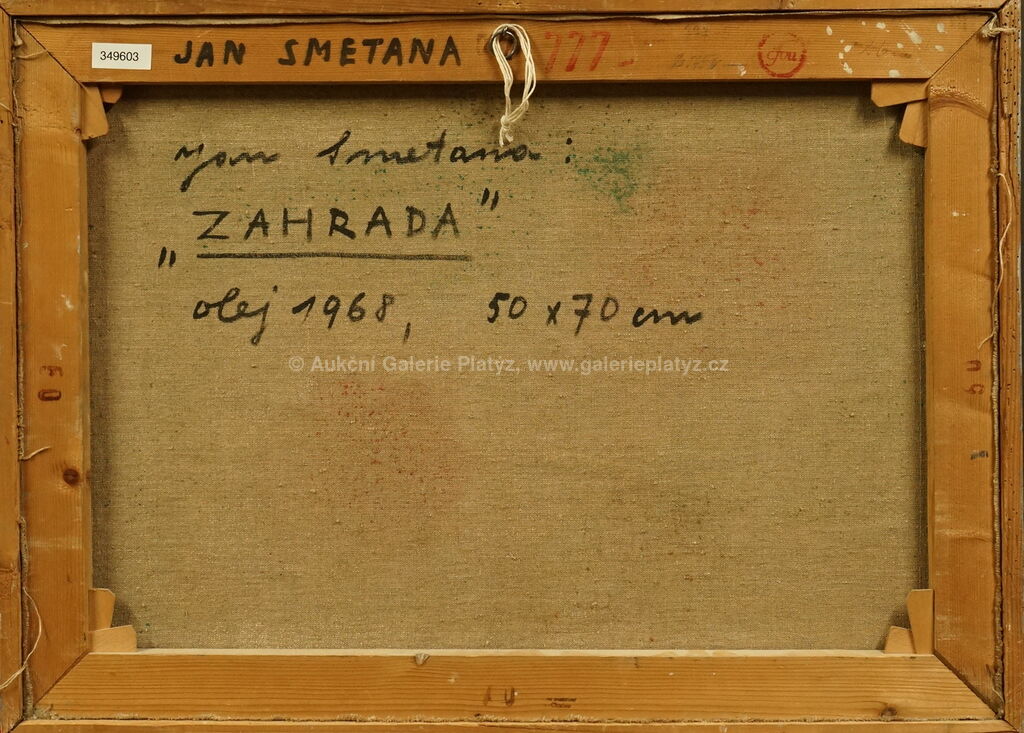 349603 JAN SMETANA 777
Jan Smetana:
„ZAHRADA"
olej 1968, 50 x 70 cm
© Aukční Galerie Platýz, www.galerieplatyz.cz